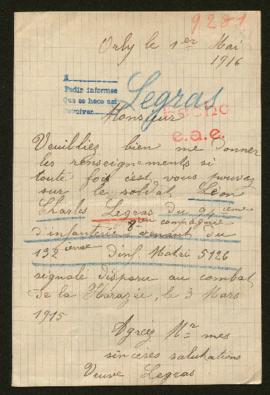 9281
Orly le 1er Mai
1916
A
Pedir informes
Que se hace así
Legras
Monsieur
e.a.e.
Veuibliés bien me donner
les renseignements si
toute fois c'est vous pouvez
sur le soldat Léon
Charles Legras du 91ième
8ième compagnie
d'infanterie venant du
132ième d'inf Matri 5126
signale disparu au combat
de la Harazée, le 3 Mars
1915
Agréez Mr mes
sinceres salutations
Veuve Legras